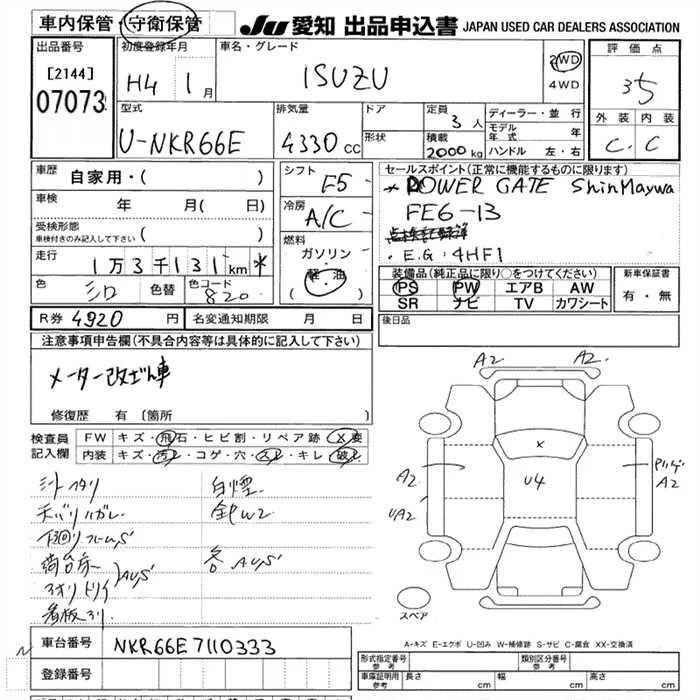 車内保管・守衛保管
JU 愛知 出品申込書 JAPAN USED CAR DEALERS ASSOCIATION
出品番号
[2144]
07073
初度登録年月
H4 1月
車名・グレード
ISUZU
2WD
4WD
評価点
3.5
外装 内装
C. C
型式
U-NKR66E
排気量
4330 CC
ドア
形状
定員 3人
積載
2000kg
ディーラー・並行
モデル年式 年
ハンドル 左・右
車歴
自家用・( )
車検 年 月( 日)
受検形態
車検付きのみ記入して下さい ( )
走行
1万3千131km *
色 シロ 色替 色コード 820
シフト
F5
冷房
A/C
燃料
ガソリン・
(軽油)
セールスポイント(正常に機能するものに限ります)
* POWER GATE ShinMaywa
FE6-13
・E.G:4HF1
装備品(純正品に限り○をつけてください)
PS PW エアB AW
SR ナビ TV カワシート
新車保証書
有・無
R券 4920 円 名変通知期限 月 日
後日品
注意事項申告欄(不具合内容等は具体的に記入して下さい)
メーター改ざん車
修復歴 有(箇所 )
検査員記入欄
FW キズ・飛石・ヒビ割・リペア跡・X要
内装 キズ・汚れ・コゲ・穴・スレ・キレ・破れ
シートヘタリ 白煙
天バリハガレ 全PW2
下回リフレームS
荷台床 各AUS
アオリトリイ AUS
看板ヌリ
A2 A2
X
A2 U4 A2
UA2
スペア
A-キズ E-エクボ U-凹み W-補修跡 S-サビ C-腐食 XX-交換済
車台番号 NKR66E7110333
登録番号
形式指定番号 参考
類別区分番号 参考
車庫証明用 参考 長さ cm 幅 cm 高さ cm